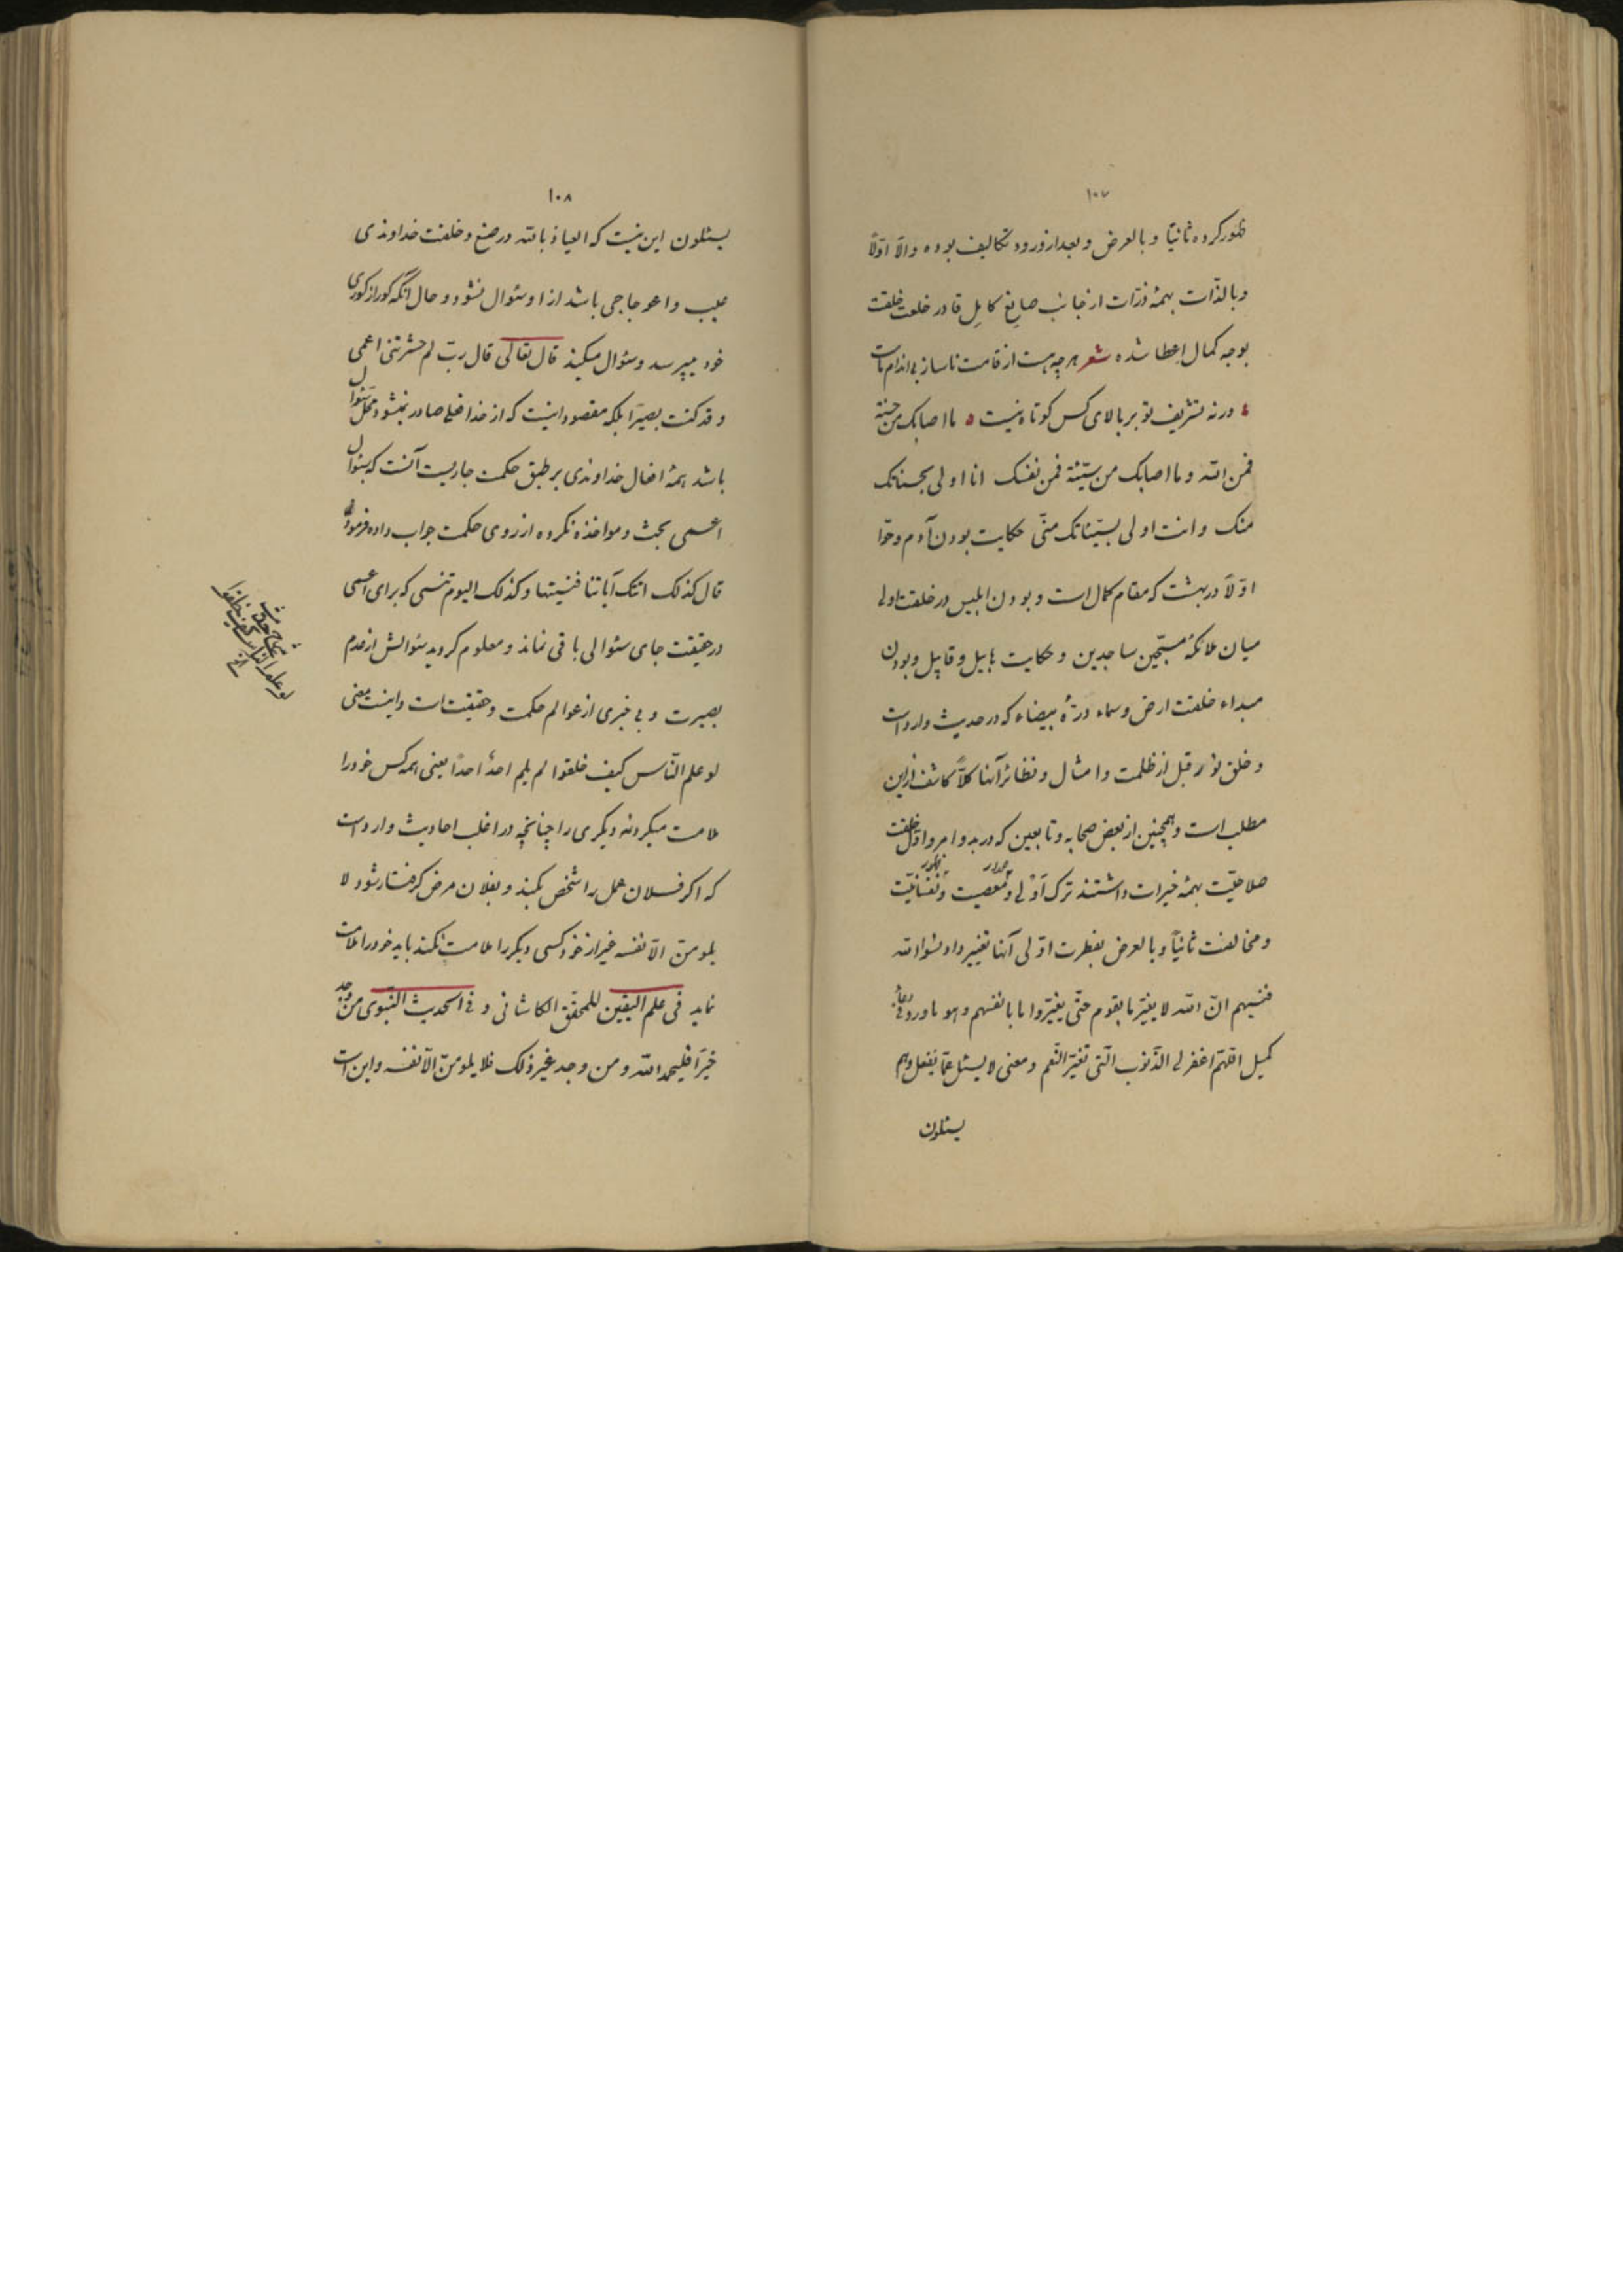 ۱۰۷
ظهور کرده ثانیاً و بالعرض و بعد از ورود تکالیف بوده والّا اوّلاً
وبالذّات بهمهٔ ذرّات از جانب صانع کامل قادر خلعت خلقت
بوجه کمال اعطا شده شعر هرچه هست از قامت ناساز بی اندام ماست
ورنه تشریف تو بر بالای کس کوتاه نیست ما اصابک من حسنة
فمن الله وما اصابک من سیّئة فمن نفسک انا اولی بحسناتک
منک وانت اولی بسیّئاتک منّی حکایت بودن آدم وحوّا
اوّلاً در بهشت که مقام کمال است و بودن ابلیس در خلقت اولی
میان ملائکهٔ مسبّحین ساجدین و حکایت هابیل و قابیل و بودن
مبداء خلقت ارض وسماء درّهٔ بیضاء که در حدیث وارد است
وخلق نور قبل از ظلمت وامثال ونظائر آنها کلّاً کاشف از این
مطلب است وهمچنین از بعض صحابه وتابعین که در بدو امر و اوّل خلقت
صلاحیّت بهمهٔ خیرات داشتند ترک اَوْلی و صدور معصیت و ظهور نفسانیّت
ومخالفت ثانیاً وبالعرض بفطرت اوّلی آنها تغییر داد نسوا الله
فنسیهم انّ الله لا یغیّر ما بقوم حتّی یغیّروا ما بانفسهم وهو ما ورد فی دعاء
کمیل اللّهمّ اغفر لی الذّنوب الّتی تغیّر النّعم ومعنی لا یسئل عمّا یفعل وهم
یسئلون
۱۰۸
یسئلون این نیست که العیاذ بالله در صنع وخلقت خداوندی
عیب واعوجاجی باشد از او سئوال نشود و حال آنکه کور از کوری
خود میپرسد وسئوال میکند قال تعالی قال ربّ لم حشرتنی اعمی
وقد کنت بصیراً بلکه مقصود اینست که از خدا فعلی صادر نمیشود محلّ سئوال
باشد همهٔ افعال خداوندی بر طبق حکمت جاریست آنست که بسئوال
اعمی بحث ومواخذه نکرده از روی حکمت جواب داده فرموده
قال کذلک اتتک آیاتنا فنسیتها وکذلک الیوم تنسی که برای اعمی
در حقیقت جای سئوالی باقی نماند ومعلوم گردید سئوالش از عدم
بصیرت و بی خبری از عوالم حکمت وحقیقت است واینست معنی
لو علم النّاس کیف خلقوا لم یلم احدٌ احداً یعنی همه کس خود را
ملامت میکردنه دیگری را چنانچه در اغلب احادیث وارد است
که اگر فلان عمل را شخص بکند و بفلان مرض گرفتار شود لا
یلومنّ الّا نفسه غیر از خود کسی دیگر را ملامت نکند باید خود را ملامت
نماید فی علم الیقین للمحقّق الکاشانی و فی الحدیث النّبوی من وجد
خیراً فلیحمد الله ومن وجد غیر ذلک فلا یلومنّ الّا نفسه و این است
لو علم النّاس کیف خلقوا